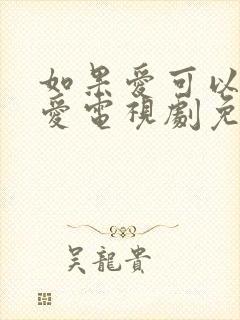 如果愛可以
愛電視劇免
吳龍貴